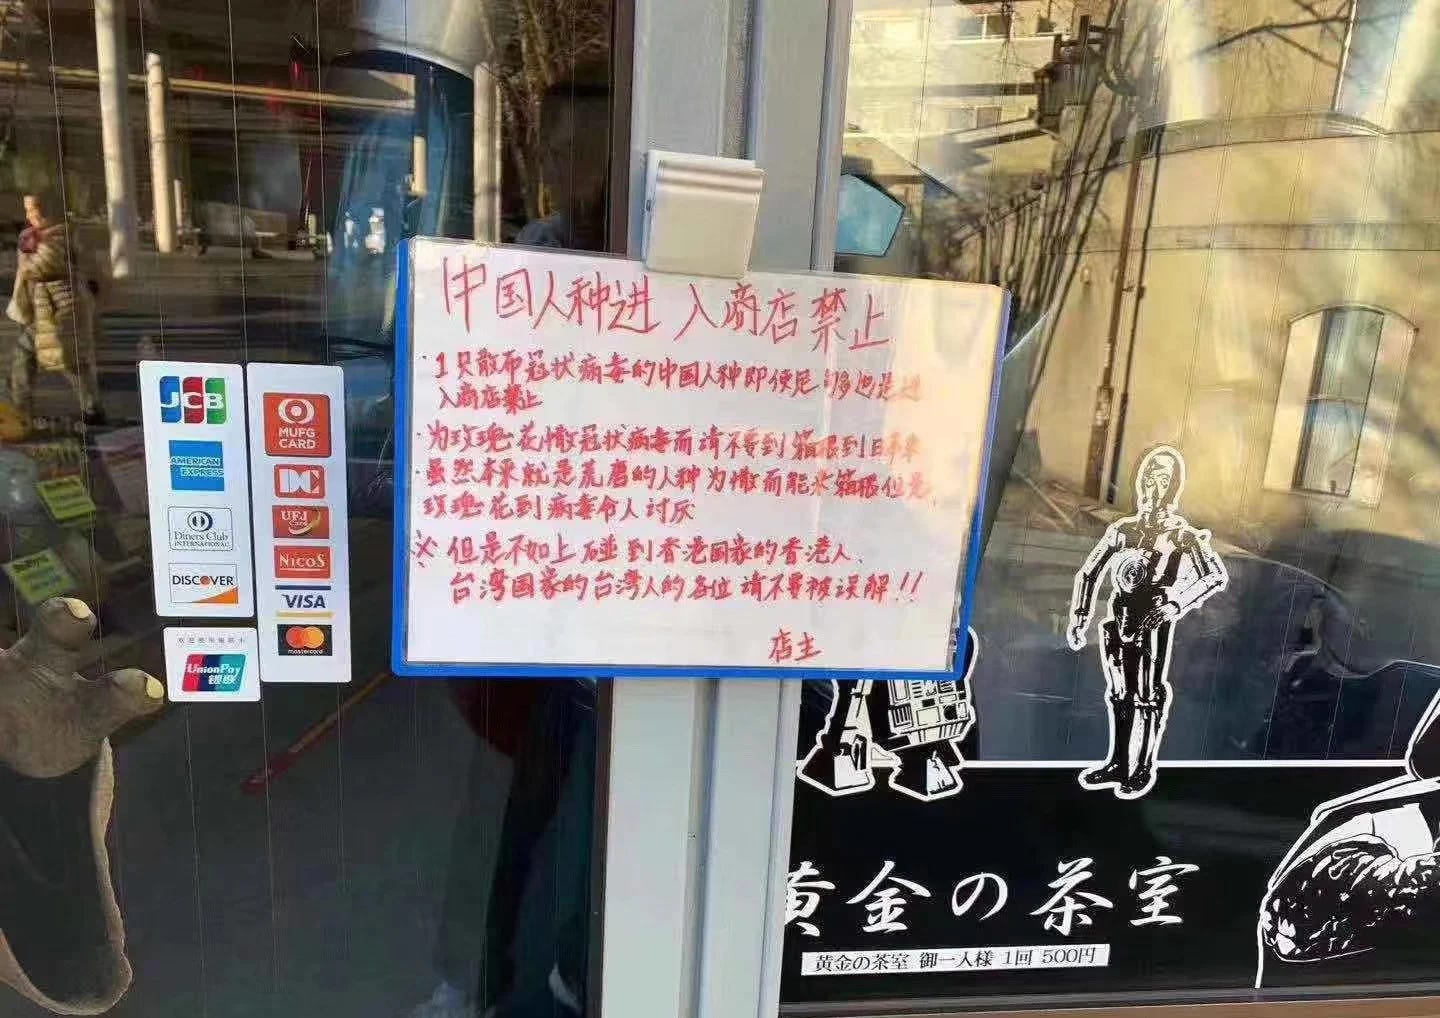 中国人种进入商店禁止
・1只散布冠状病毒的中国人种即使是
入商店禁止
・为玫瑰花撒冠状病毒而请不要到箱根到日本来
・虽然本来就是荒磨的人种为撒而能来箱根但是、
玫瑰花到病毒令人讨厌
※但是不如上碰到香港国家的香港人、
台湾国家的台湾人的各位请不要被误解!!
店主
JCB
AMERICAN EXPRESS
Diners Club
INTERNATIONAL
DISCOVER
UnionPay
银联
MUFG
CARD
DC
UFJ
Card
NICOS
VISA
mastercard
黄金の茶室
黄金の茶室 御一人様 1回 500円